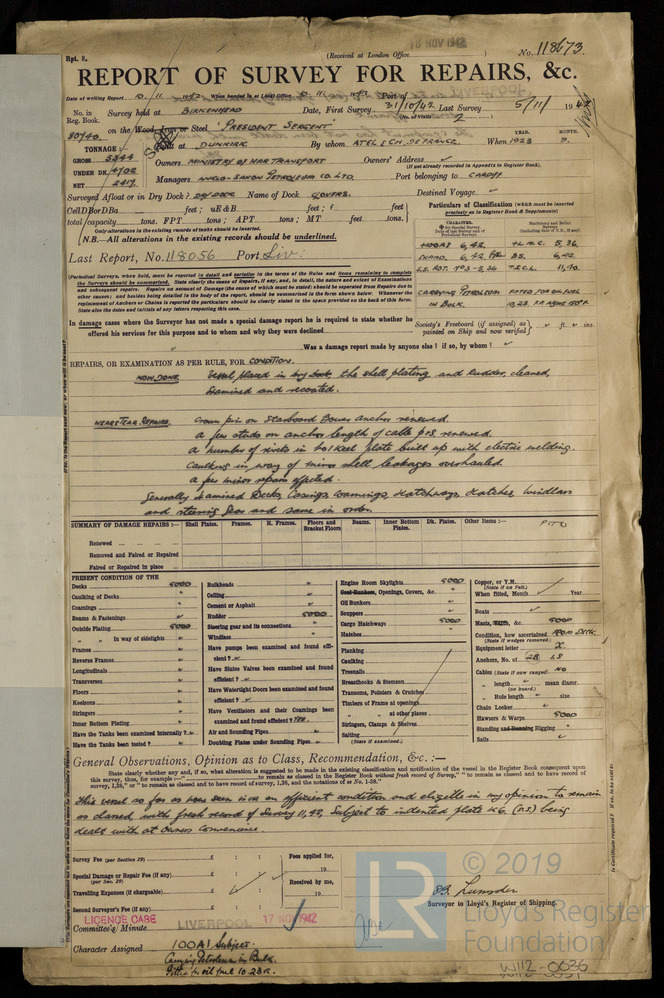 18 NOV 1942
Rpt. 8.
(Received at London Office
No. 118673.
REPORT OF SURVEY FOR REPAIRS, &c.
Date of writing Report 10. 11. 1942 When handed in at Local Office 10. 11. 1942 Port of
No. in Reg. Book. Survey held at BIRKENHEAD Date, First Survey 31/10/42 Last Survey 5/11/1942
(No. of Visits 2)
80740 on the Wood, Iron or Steel "PRESIDENT SERGENT"
TONNAGE:— Built at DUNKIRK By whom ATEL & CH. DE FRANCE. When 1923 YEAR. MONTH. 9.
GROSS 5344 Owners MINISTRY OF WAR TRANSPORT Owners' Address
(if not already recorded in Appendix to Register Book).
UNDER DK. 4702
NET 2417 Managers ANGLO-SAXON PETROLEUM CO. LTD. Port belonging to CARDIFF
Surveyed Afloat or in Dry Dock? DRYDOCK Name of Dock CLOVERS. Destined Voyage
Cell D Bor D Ba feet; uE&B feet; f feet
total capacity tons. FPT tons; APT tons; MT feet tons.
Only alterations in the existing records of tanks should be inserted.
N.B.—All alterations in the existing records should be underlined.
Particulars of Classification (which must be inserted
precisely as in Register Book & Supplements)
Last Report, No. 118056 Port Liv:
+100A1 6,42 +L.M.C. 5,36
6,42 BS. 6,42
S.S. T.S.C.L. 11,40
CARRYING PETROLEUM FITTED FOR OIL FUEL
IN BULK. 10,23 F.P. ABOVE 150°F
(Periodical Surveys, when held, must be reported in detail and seriatim in the terms of the Rules and items remaining to complete
the Surveys should be summarised. State clearly the causes of Repairs, if any, and, in detail, the nature and extent of Examinations
and subsequent repairs. Repairs on account of Damage (the cause of which must be stated) should be separated from Repairs due to
other causes; and besides being detailed in the body of the report, should be summarised in the form shewn below. Whenever the
replacement of Anchors or Chains is reported the particulars should be clearly stated in the space provided on the back of this form.
State also the dates and initials of any letters respecting this case.
In damage cases where the Surveyor has not made a special damage report he is required to state whether he
offered his services for this purpose and to whom and why they were declined
Society's Freeboard (if assigned) as painted on Ship and now verified ft. ins.
Was a damage report made by anyone else? if so, by whom?
REPAIRS, OR EXAMINATION AS PER RULE, FOR CONDITION.
NOW DONE Vessel placed in dry dock the shell plating and rudder, cleaned,
examined and recoated.
WEAR & TEAR REPAIRS. Crown pin on Starboard Bower anchor renewed.
A few studs on anchor length of cable renewed.
A number of rivets in keel plate built up with electric welding.
Caulking in way of minor shell leakages overhauled.
A few minor repairs effected.
Generally examined Decks, Casings, Coamings, Hatchways, Hatches, Windlass
and steering Gear and same in order.
PTO
SUMMARY OF DAMAGE REPAIRS:— Shell Plates. Frames. R. Frames. Floors and Bracket Floors Beams. Inner Bottom Plates. Dk. Plates. Other Items:—
Renewed
Removed and Faired or Repaired
Faired or Repaired in place
PRESENT CONDITION OF THE
Decks GOOD
Caulking of Decks "
Coamings "
Beams & Fastenings "
Outside Plating GOOD
" " In way of sidelights
Frames
Reverse Frames
Longitudinals
Transverses
Floors
Keelsons
Stringers
Inner Bottom Plating
Have the Tanks been examined internally?
Have the Tanks been tested?
Bulkheads
Ceiling
Cement or Asphalt
Rudder GOOD
Steering gear and its connections
Windlass
Have pumps been examined and found efficient?
Have Sluice Valves been examined and found efficient?
Have Watertight Doors been examined and found efficient?
Have Ventilators and their Coamings been examined and found efficient? YES.
Air and Sounding Pipes
Doubling Plates under Sounding Pipes
Engine Room Skylights GOOD
Coal Bunkers, Openings, Covers, &c.
Oil Bunkers
Scuppers
Cargo Hatchways GOOD
Hatches
Planking
Caulking
Treenails
Breasthooks & Stemson
Transoms, Pointers & Crutches
Timbers of Frame at openings
" " at other places
Stringers, Clamps & Shelves
Salting
(State if examined.)
Copper, or Y.M.
(State if on Felt.)
When fitted, Month Year
Boats
Masts, Yards, &c. GOOD
Condition, how ascertained FROM DECK.
(State if wedges removed.)
Equipment letter X
Anchors, No. of 2B 1S
Cables (State if now ranged) NO
" length mean diamr.
(on board.)
" Rule length size
Chain Locker
Hawsers & Warps GOOD
Standing and Running Rigging
Sails
General Observations, Opinion as to Class, Recommendation, &c. :—
State clearly whether any and, if so, what alteration is suggested to be made in the existing classification and notification of the vessel in the Register Book consequent upon
this survey, thus, for example:— "to remain as classed in the Register Book without fresh record of Survey," "to remain as classed and to have record of
survey, 1,38," or "to remain as classed and to have record of survey, 1,38, and the notations of ss No. 1-38."
This vessel so far as now seen is in an efficient condition and eligible in my opinion to remain
as classed, with fresh record of Survey 11,42, subject to indented plate K6. (P.S.) being
dealt with at Owners convenience.
Survey Fee (per Section 29) £ : : Fees applied for,
19
Special Damage or Repair Fee (if any) £ : :
(per Sec. 29)
Received by me,
Travelling Expenses (if chargeable) £ : :
19
Second Surveyor's Fee (if any) £ : :
Lumsden
Surveyor to Lloyd's Register of Shipping.
LICENCE CASE LIVERPOOL 17 NOV 1942
Committee's Minute
Character Assigned 100A1 Subject.
Carrying Petroleum in Bulk.
Fitted for oil fuel 10.23 R.
LR
© 2019
Lloyd's Register
Foundation
W112-0036